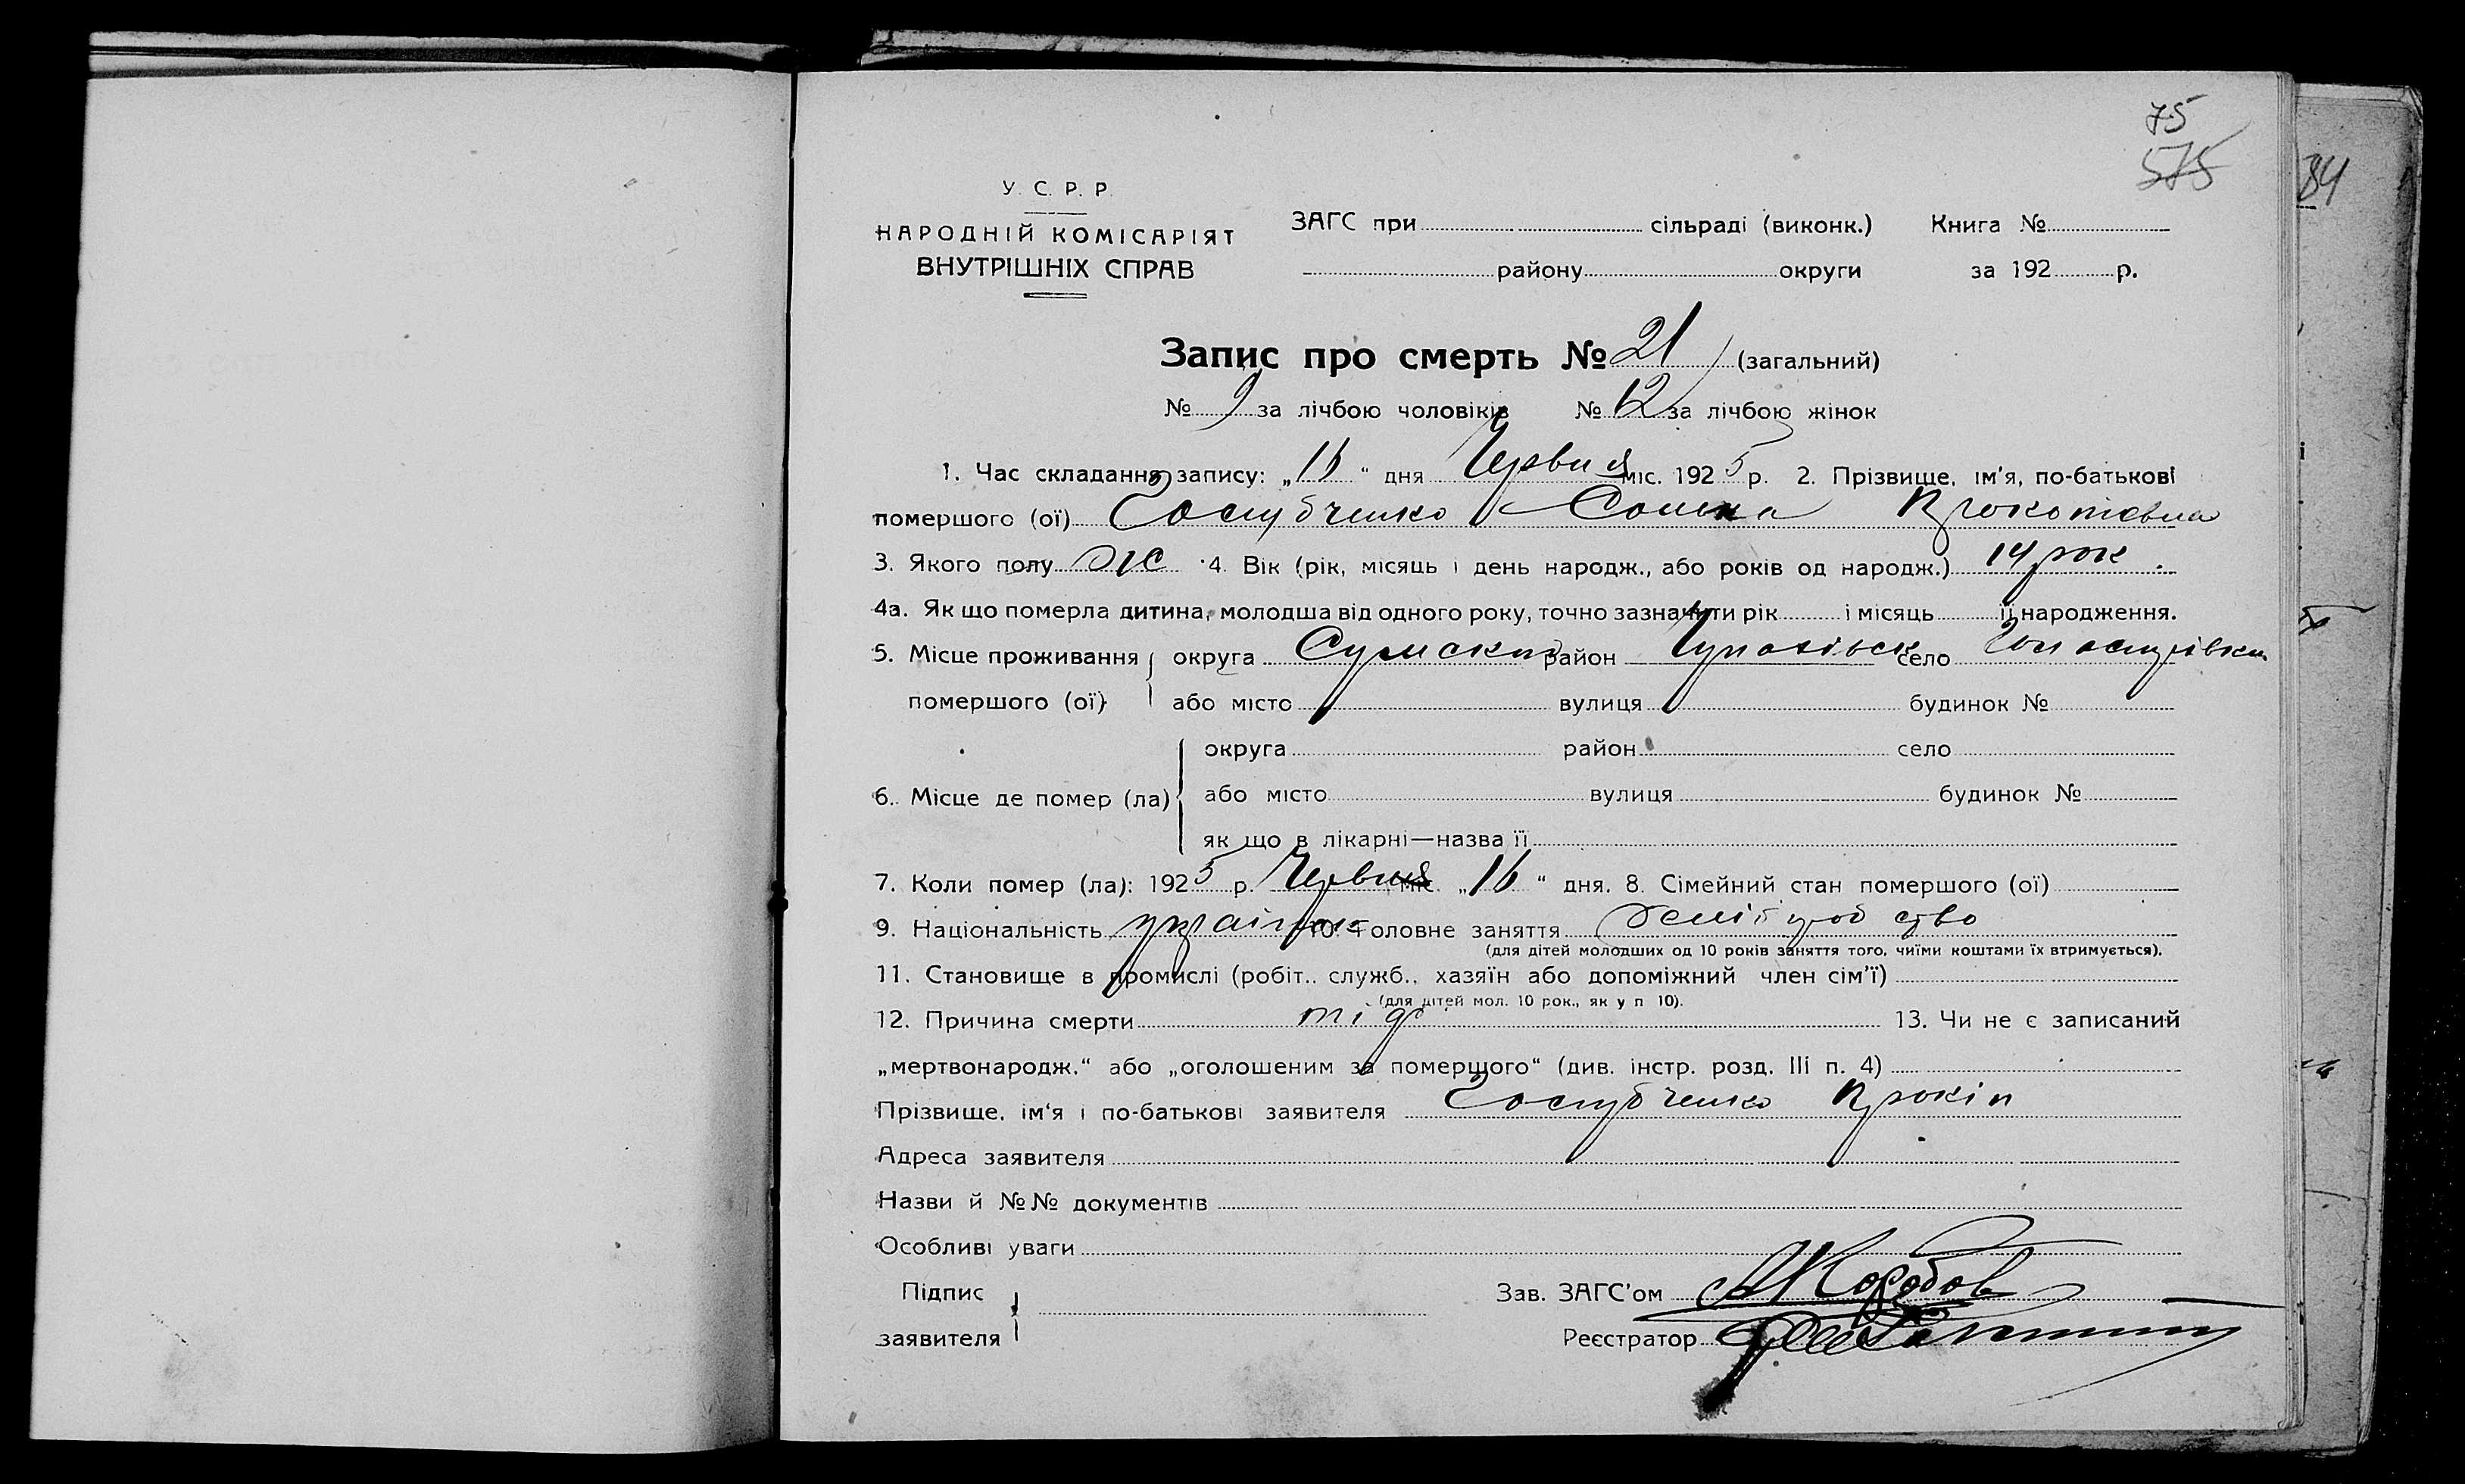 75
575
84
У. С. Р. Р.
НАРОДНІЙ КОМІСАРІЯТ
ВНУТРІШНІХ СПРАВ
ЗАГС при сільраді (виконк.) Книга №
району округи за 192 р.
Запис про смерть № 21 (загальний)
№ 9 за лічбою чоловіків № 12 за лічбою жінок
1. Час складання запису: „16“ дня Червня міс. 1925 р. 2. Прізвище, ім’я, по-батькові
помершого (ої)Голубченко Прокопівна
3. Якого полу ж 4. Вік (рік, місяць і день народж., або років од народж.) 14 рок.
4а. Як що померла дитина, молодша від одного року, точно зазначити рік і місяць її народження.
5. Місце проживання округа Сумска район село
помершого (ої) або місто вулиця будинок №
округа район село
6. Місце де помер (ла) або місто вулиця будинок №
як що в лікарні—назва її
7. Коли помер (ла): 1925 р. Червня міс. „16“ дня. 8. Сімейний стан помершого (ої)
9. Національність 10. Головне заняття хліборобство
(для дітей молодших од 10 років заняття того, чиїми коштами їх втримується).
11. Становище в промислі (робіт., служб., хазяїн або допоміжний член сім’ї)
(для дітей мол. 10 рок., як у п 10).
12. Причина смерти 13. Чи не є записаний
„мертвонародж.“ або „оголошеним за померщого“ (див. інстр. розд. III п. 4)
Прізвище, ім‘я і по-батькові заявителя Голубченко Прокіп
Адреса заявителя
Назви й №№ документів
Особливі уваги
Підпис Зав. ЗАГС’ом
заявителя Реєстратор